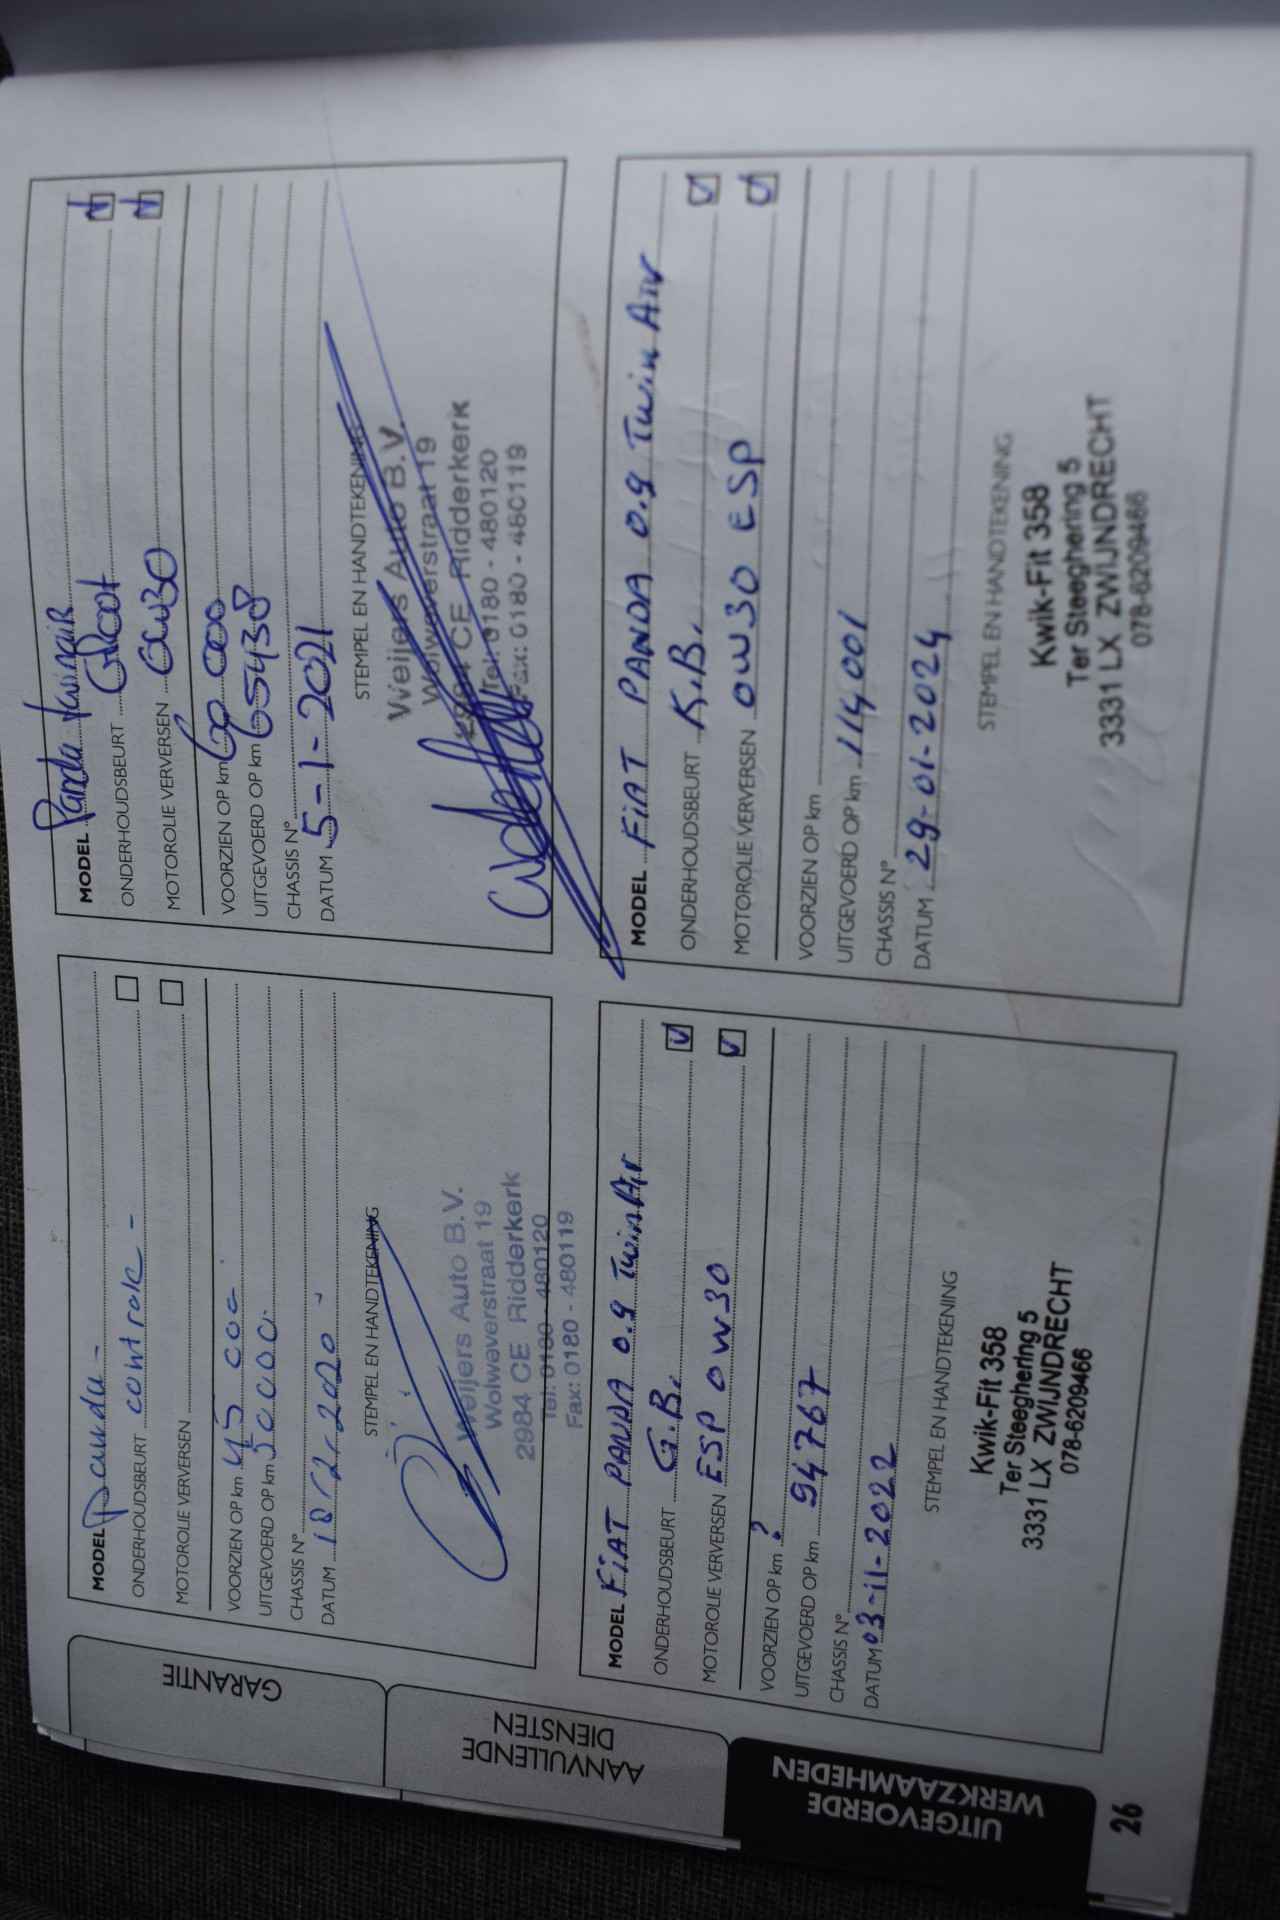 MODEL Panda -
ONDERHOUDSBEURT controle -
MOTOROLIE VERVERSEN
VOORZIEN OP km 45 000
UITGEVOERD OP km 50 000.
CHASSIS N°
DATUM
STEMPEL EN HANDTEKENING
Weijers Auto B.V.
Wolweverstraat 19
2984 CE Ridderkerk
Tel: 0180 - 480120
Fax: 0180 - 480119
MODEL Panda twinair
ONDERHOUDSBEURT Groot
MOTOROLIE VERVERSEN 0W30
VOORZIEN OP km 60 000
UITGEVOERD OP km 65438
CHASSIS N°
DATUM 5-1-2021
STEMPEL EN HANDTEKENING
Weijers Auto B.V.
Wolweverstraat 19
2984 CE Ridderkerk
Tel: 0180 - 480120
Fax: 0180 - 480119
MODEL FIAT PANDA 0.9 TwinAir
ONDERHOUDSBEURT G.B.
MOTOROLIE VERVERSEN ESP 0W30
VOORZIEN OP km ?
UITGEVOERD OP km 94767
CHASSIS N°
DATUM 03-11-2022
STEMPEL EN HANDTEKENING
Kwik-Fit 358
Ter Steeghering 5
3331 LX ZWIJNDRECHT
078-6209466
MODEL FIAT PANDA 0.9 Twin Air
ONDERHOUDSBEURT K.B.
MOTOROLIE VERVERSEN 0W30 ESP
VOORZIEN OP km
UITGEVOERD OP km 114001
CHASSIS N°
DATUM 29-01-2024
STEMPEL EN HANDTEKENING
Kwik-Fit 358
Ter Steeghering 5
3331 LX ZWIJNDRECHT
078-6209466
GARANTIE
AANVULLENDE
DIENSTEN
UITGEVOERDE
WERKZAAMHEDEN
26